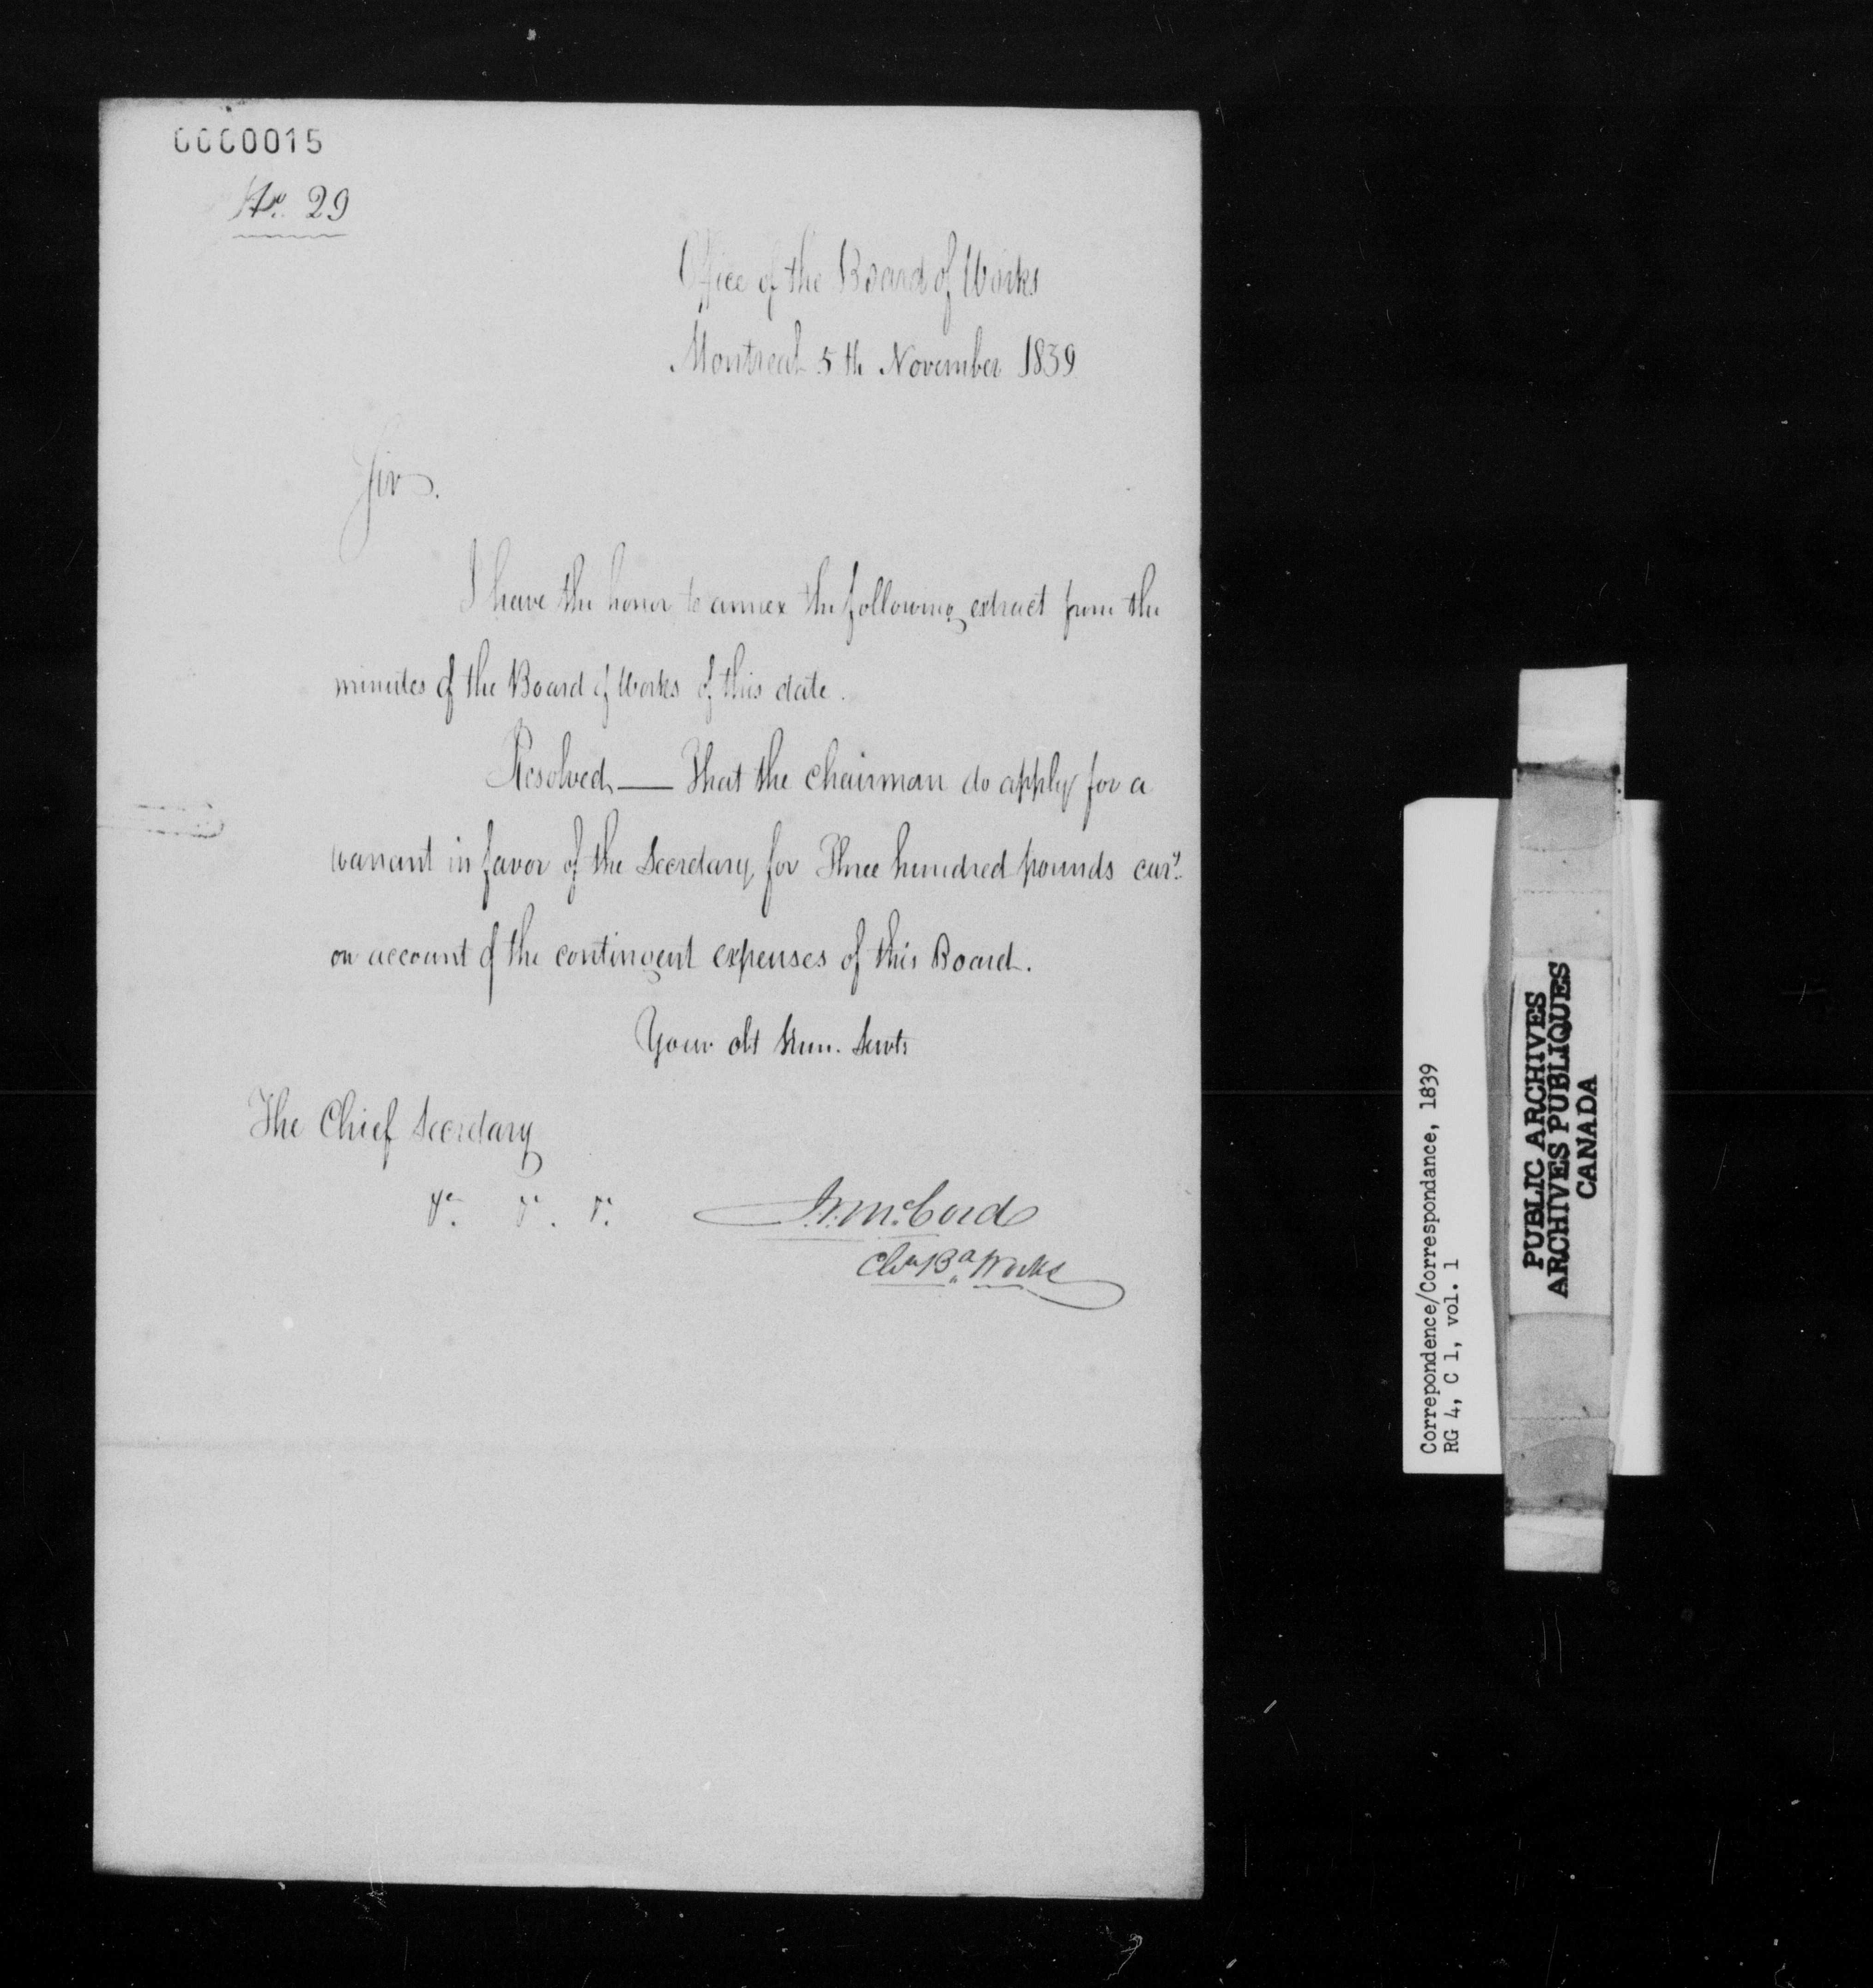 0000015
No. 29
Office of the Board of Works
Montreal 5th November 1839
Sir.
I have the honor to annex the following extract from the
minutes of the Board of Works of this date.
Resolved — That the Chairman do apply for a
warrant in favor of the Secretary for Three hundred pounds curʸ
on account of the contingent expenses of this Board.
Your obt Hum. Servts
The Chief Secretary
&c. &c. &c.
McCord
Chn Bd Works
Correpondence/Correspondance, 1839
RG 4, C 1, vol. 1
PUBLIC ARCHIVES
ARCHIVES PUBLIQUES
CANADA